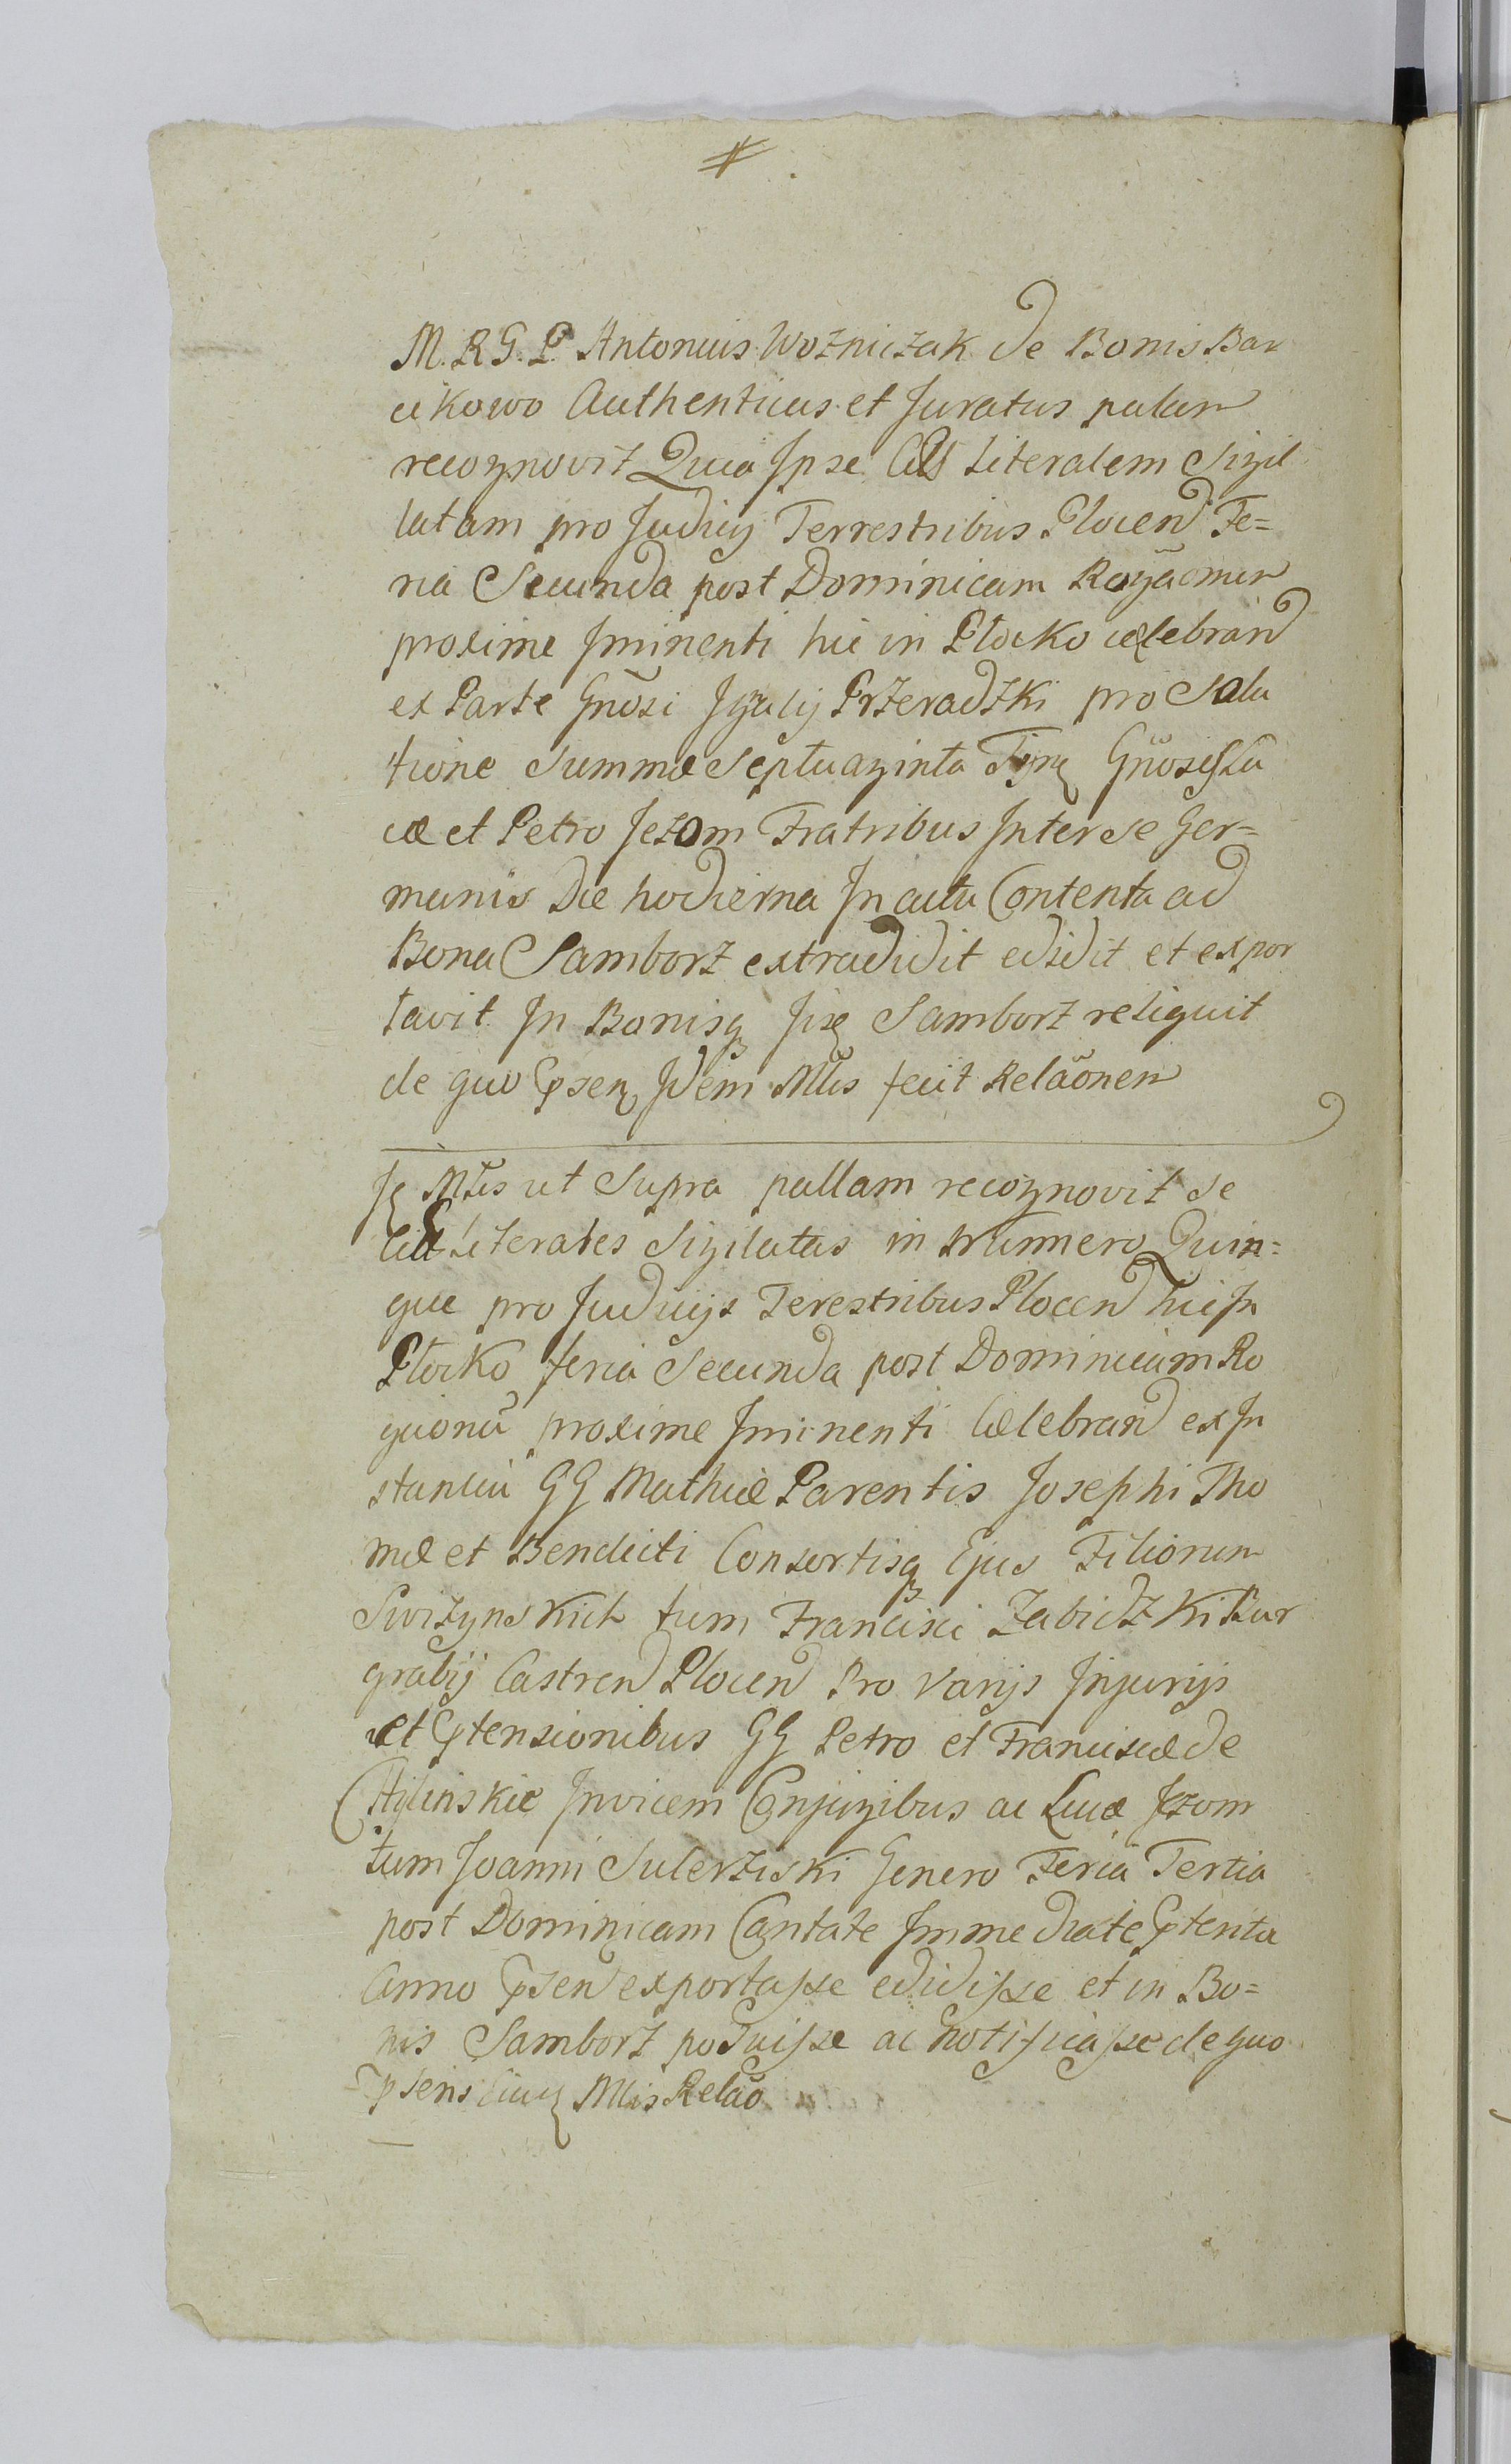 M. R G. P. Antonius Wozniczak de Bonis Bar
cikowo Authenticus et Juratus palam
recognovit Quia Ipse Citt Literalem Sigil
latam pro Judicijs Terrestribus Plocen Fe=
ria Secunda post Dominicam Rogãonum
proxime Iminenti hic in Płocko celebrand
ex Parte Gnosi Przeradzki pro Solu
tione Summæ Septuaginta Gnosis Lu
cæ et Petro Jezom Fratribus Inter se Ger=
manis Die hodierna In actu Contenta ad
Bona Samborz extradidit edidit et expor
tavit In Bonisq Samborz reliquit
de quo Idem Mlis fecit Relãonem
Mlis ut Supra pallam recognovit se
Citt Literales Sigilatas in Numero Quin=
que pro Judicijs Terestribus Plocen hic In
Płocko feria Secunda post Dominicam Ro
gaonũ proxime Iminenti Cælebrand ex In
stantia GG Mathiæ Parentis Josephi Tho
mæ et Bendicti Consortisq Ejus Filiorum
Swizynskich tum Francisci Zabidzki Bur
grabij Castren Plocen Pro Varijs Injurijs
et Ptensionibus GG Petro et Franciscæ de
Chylinskie Invicem Conjugibus ac Lucæ Jezom
tum Joanni Sulerziski Genero Feria Tertia
post Dominicam Cantate Immediate Pterita
Anno Psen exportasse edidisse et in Bo=
nis Samborz posuisse ac notificasse de quo
Psens Mlis Relao